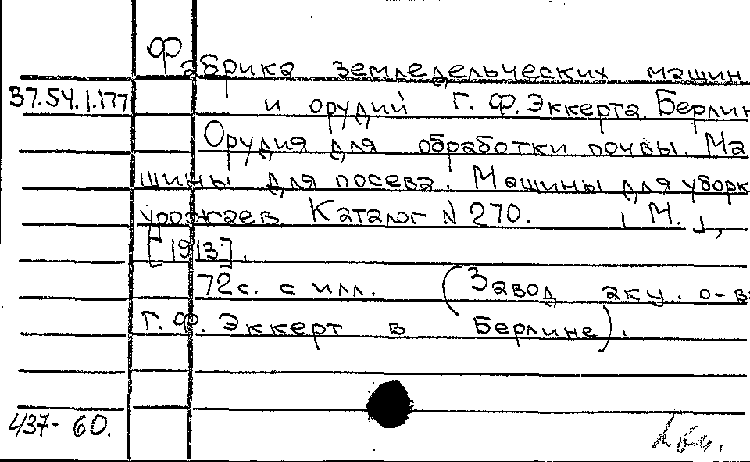 Фабрика земледельческих машин
37.54.1.177 и орудий Г. Ф. Эккерта. Берлин
Орудия для обработки почвы. Ма-
шины для посева. Машины для уборк
урожаев. Каталог N 270. [М.],
[1913].
72с. с илл. (Завод акц. о-в
Г. Ф. Эккерт в Берлине).
437-60.